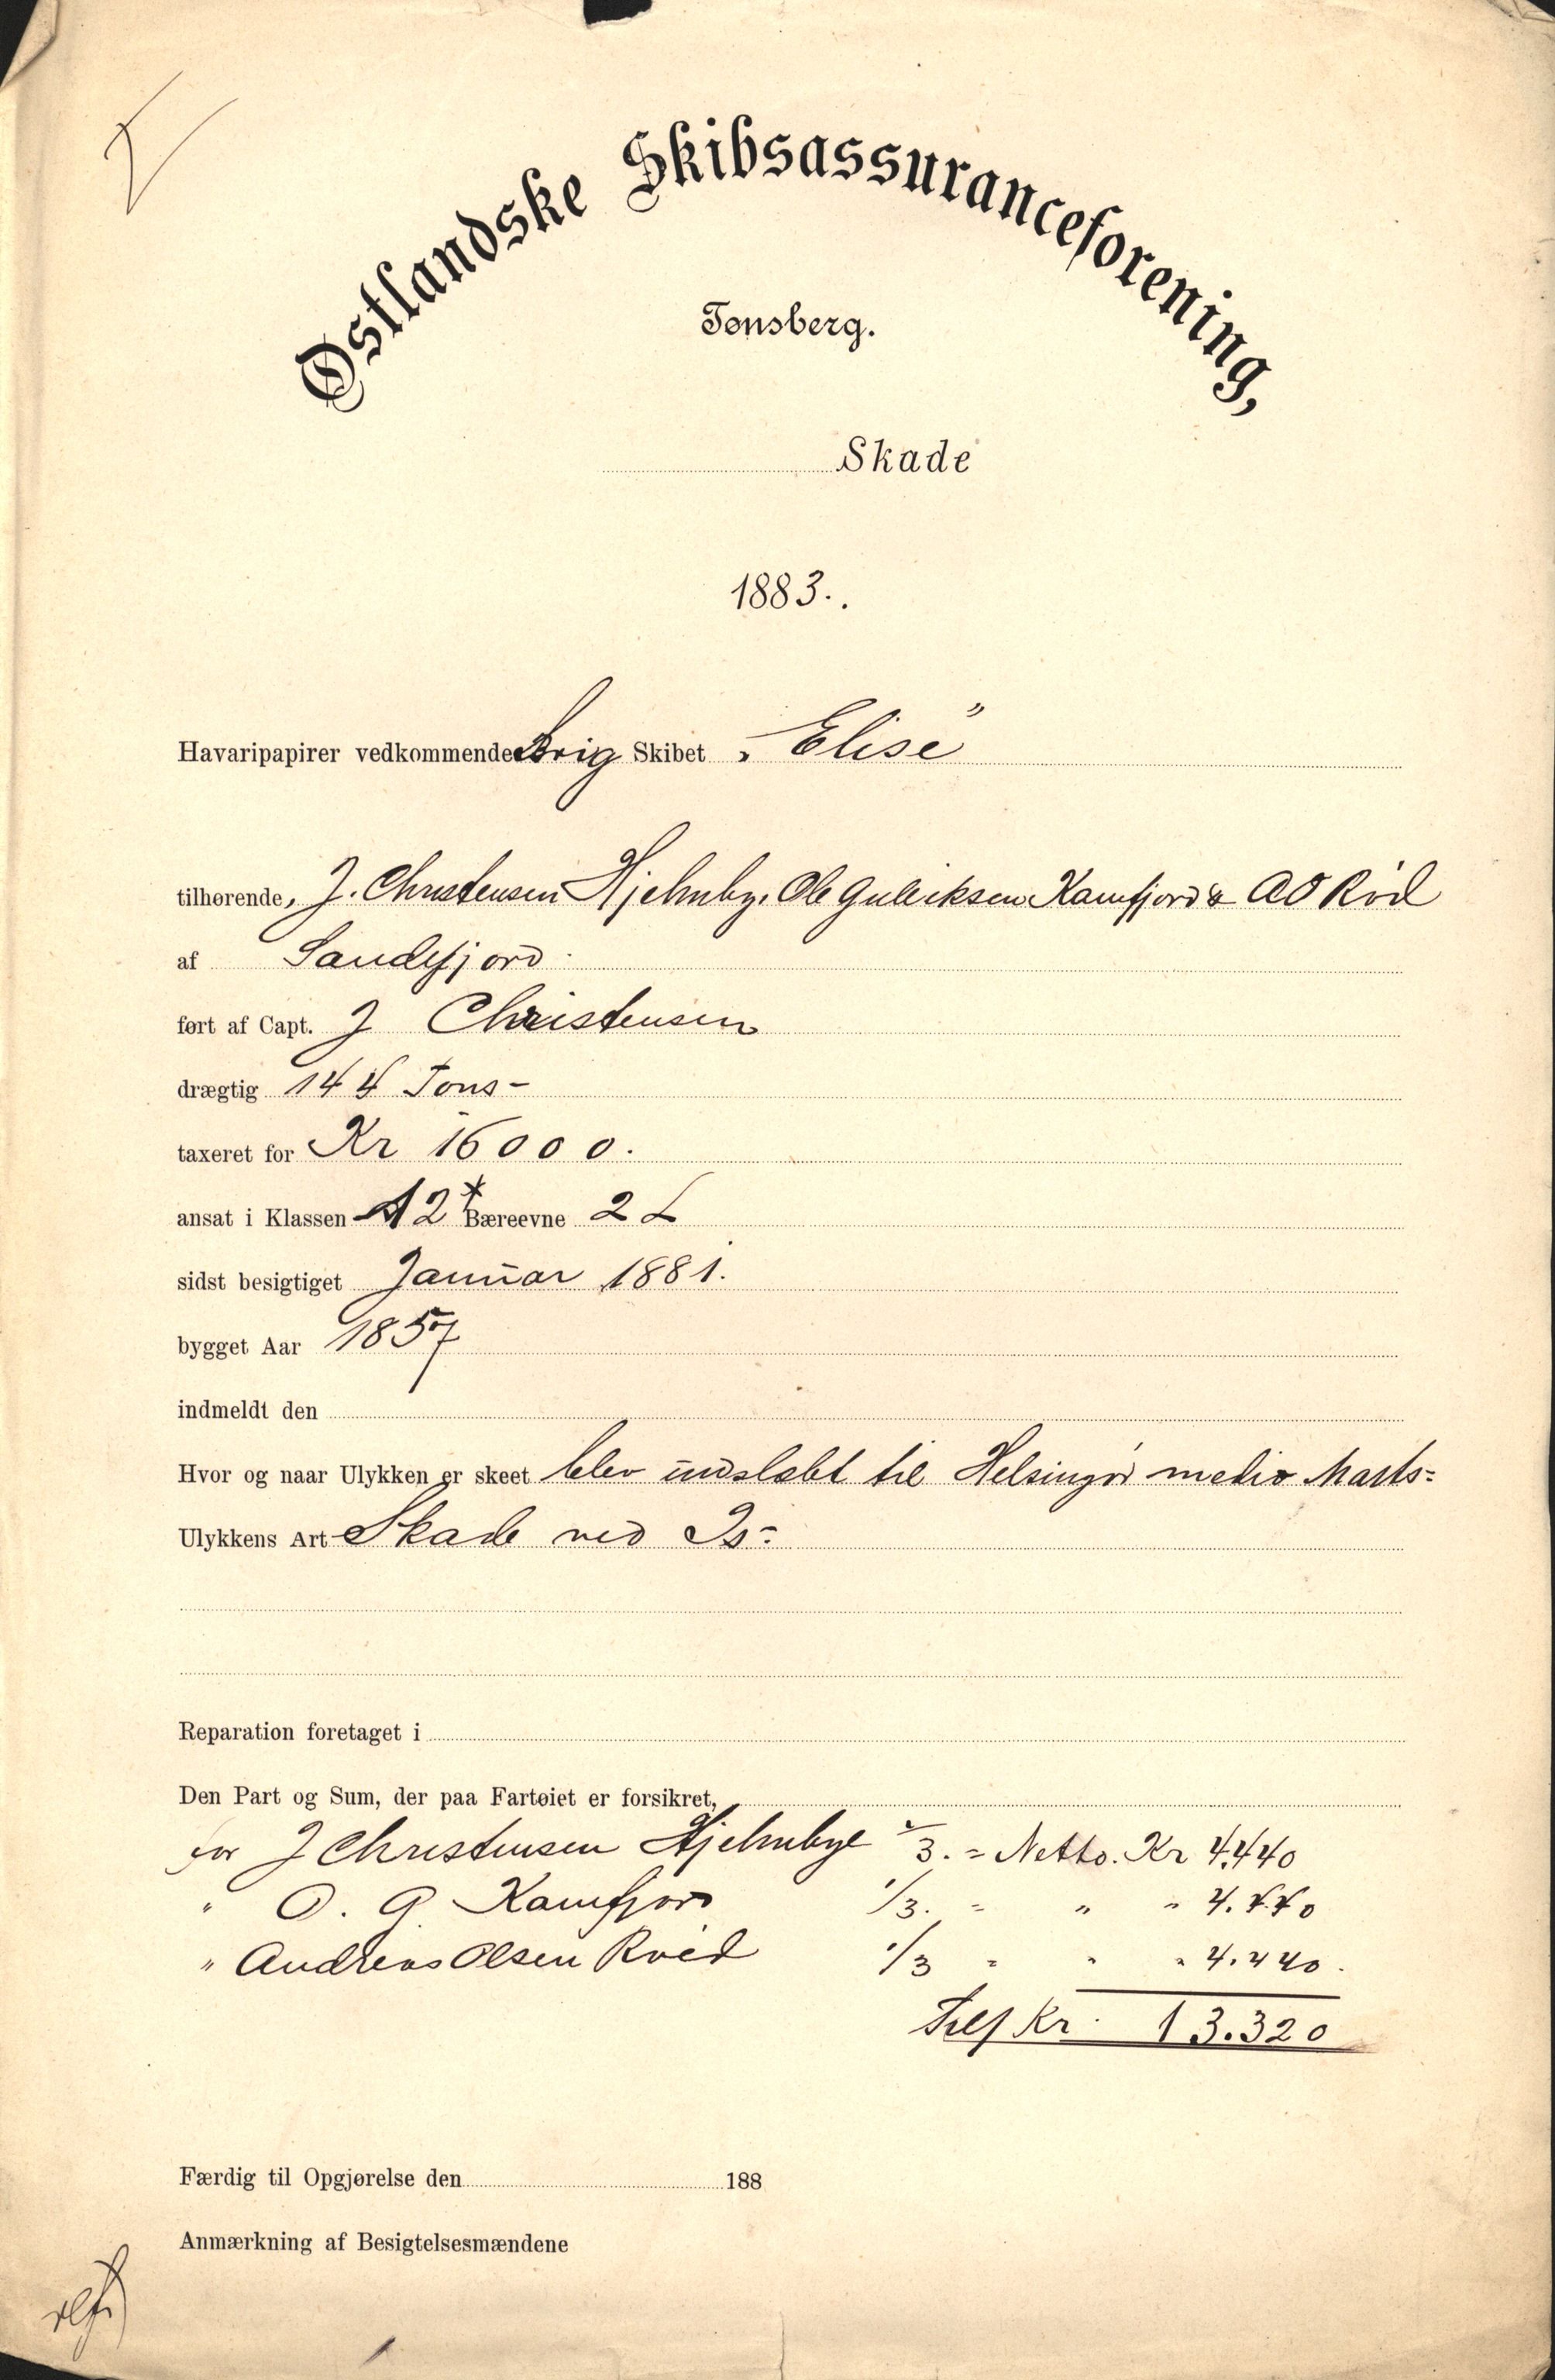 Østlandske Skibsassuranceforening,
Tønsberg.
Skade
1883.
Havaripapirer vedkommende Brig Skibet „Elise”
tilhørende, J. Christensen Hjelmby, Ole Gulliksen Kamfjord & AO Röd
af Sandefjord
ført af Capt. J Christensen
drægtig 144 Tons-
taxeret for Kr 16000.
ansat i Klassen A2* Bæreevne 2 L
sidst besigtiget Januar 1881.
bygget Aar 1857
indmeldt den
Hvor og naar Ulykken er skeet blev indslæbt til Helsingør medio Marts-
Ulykkens Art Skade ved Is-
Reparation foretaget i
Den Part og Sum, der paa Fartøiet er forsikret,
for J Christensen Hjelmbye 1/3. = Netto. Kr 4,440
" O. G. Kamfjord 1/3. = " " 4.440
" Andreas Olsen Röed 1/3 = " " 4.440.
Kr. 13.320
Færdig til Opgjørelse den 188
Anmærkning af Besigtelsesmændene